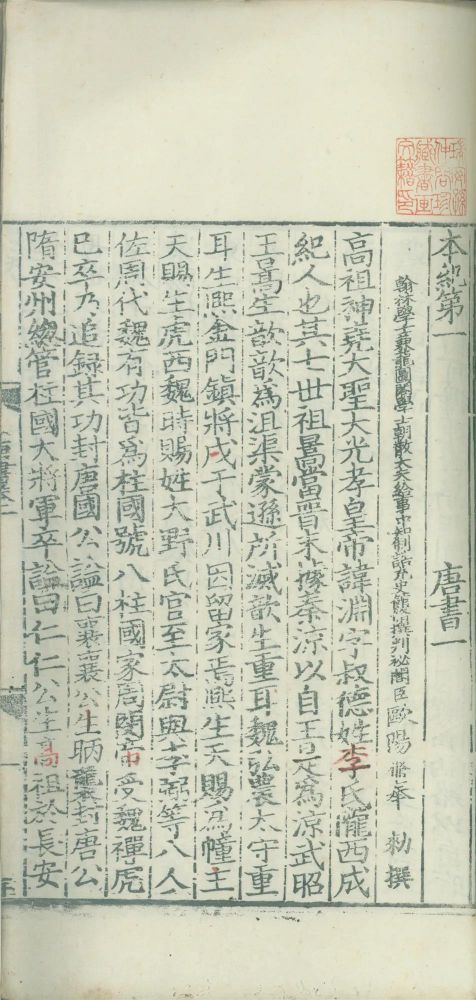 本紀第一 唐書一
翰林學士兼龍圖閣學士朝散大夫給事中知制誥充史館脩撰判祕閣臣歐陽脩奉 勑撰
高祖神堯大聖大光孝皇帝諱淵字叔德姓李氏隴西成
紀人也其七世祖暠當晉末據秦涼以自王是爲涼武昭
王暠生歆歆爲沮渠蒙遜所滅歆生重耳魏弘農太守重
耳生熙金門鎮將戍于武川因留家焉熈生天賜爲幢主
天賜生虎西魏時賜姓大野氏官至太尉與李弼等八人
佐周代魏有功皆爲柱國號八柱國家周閔帝受魏禪虎
已卒乃追録其功封唐國公謚曰襄襄公生昞襲封唐公
隋安州緫管柱國大將軍卒謚曰仁仁公生高祖於長安